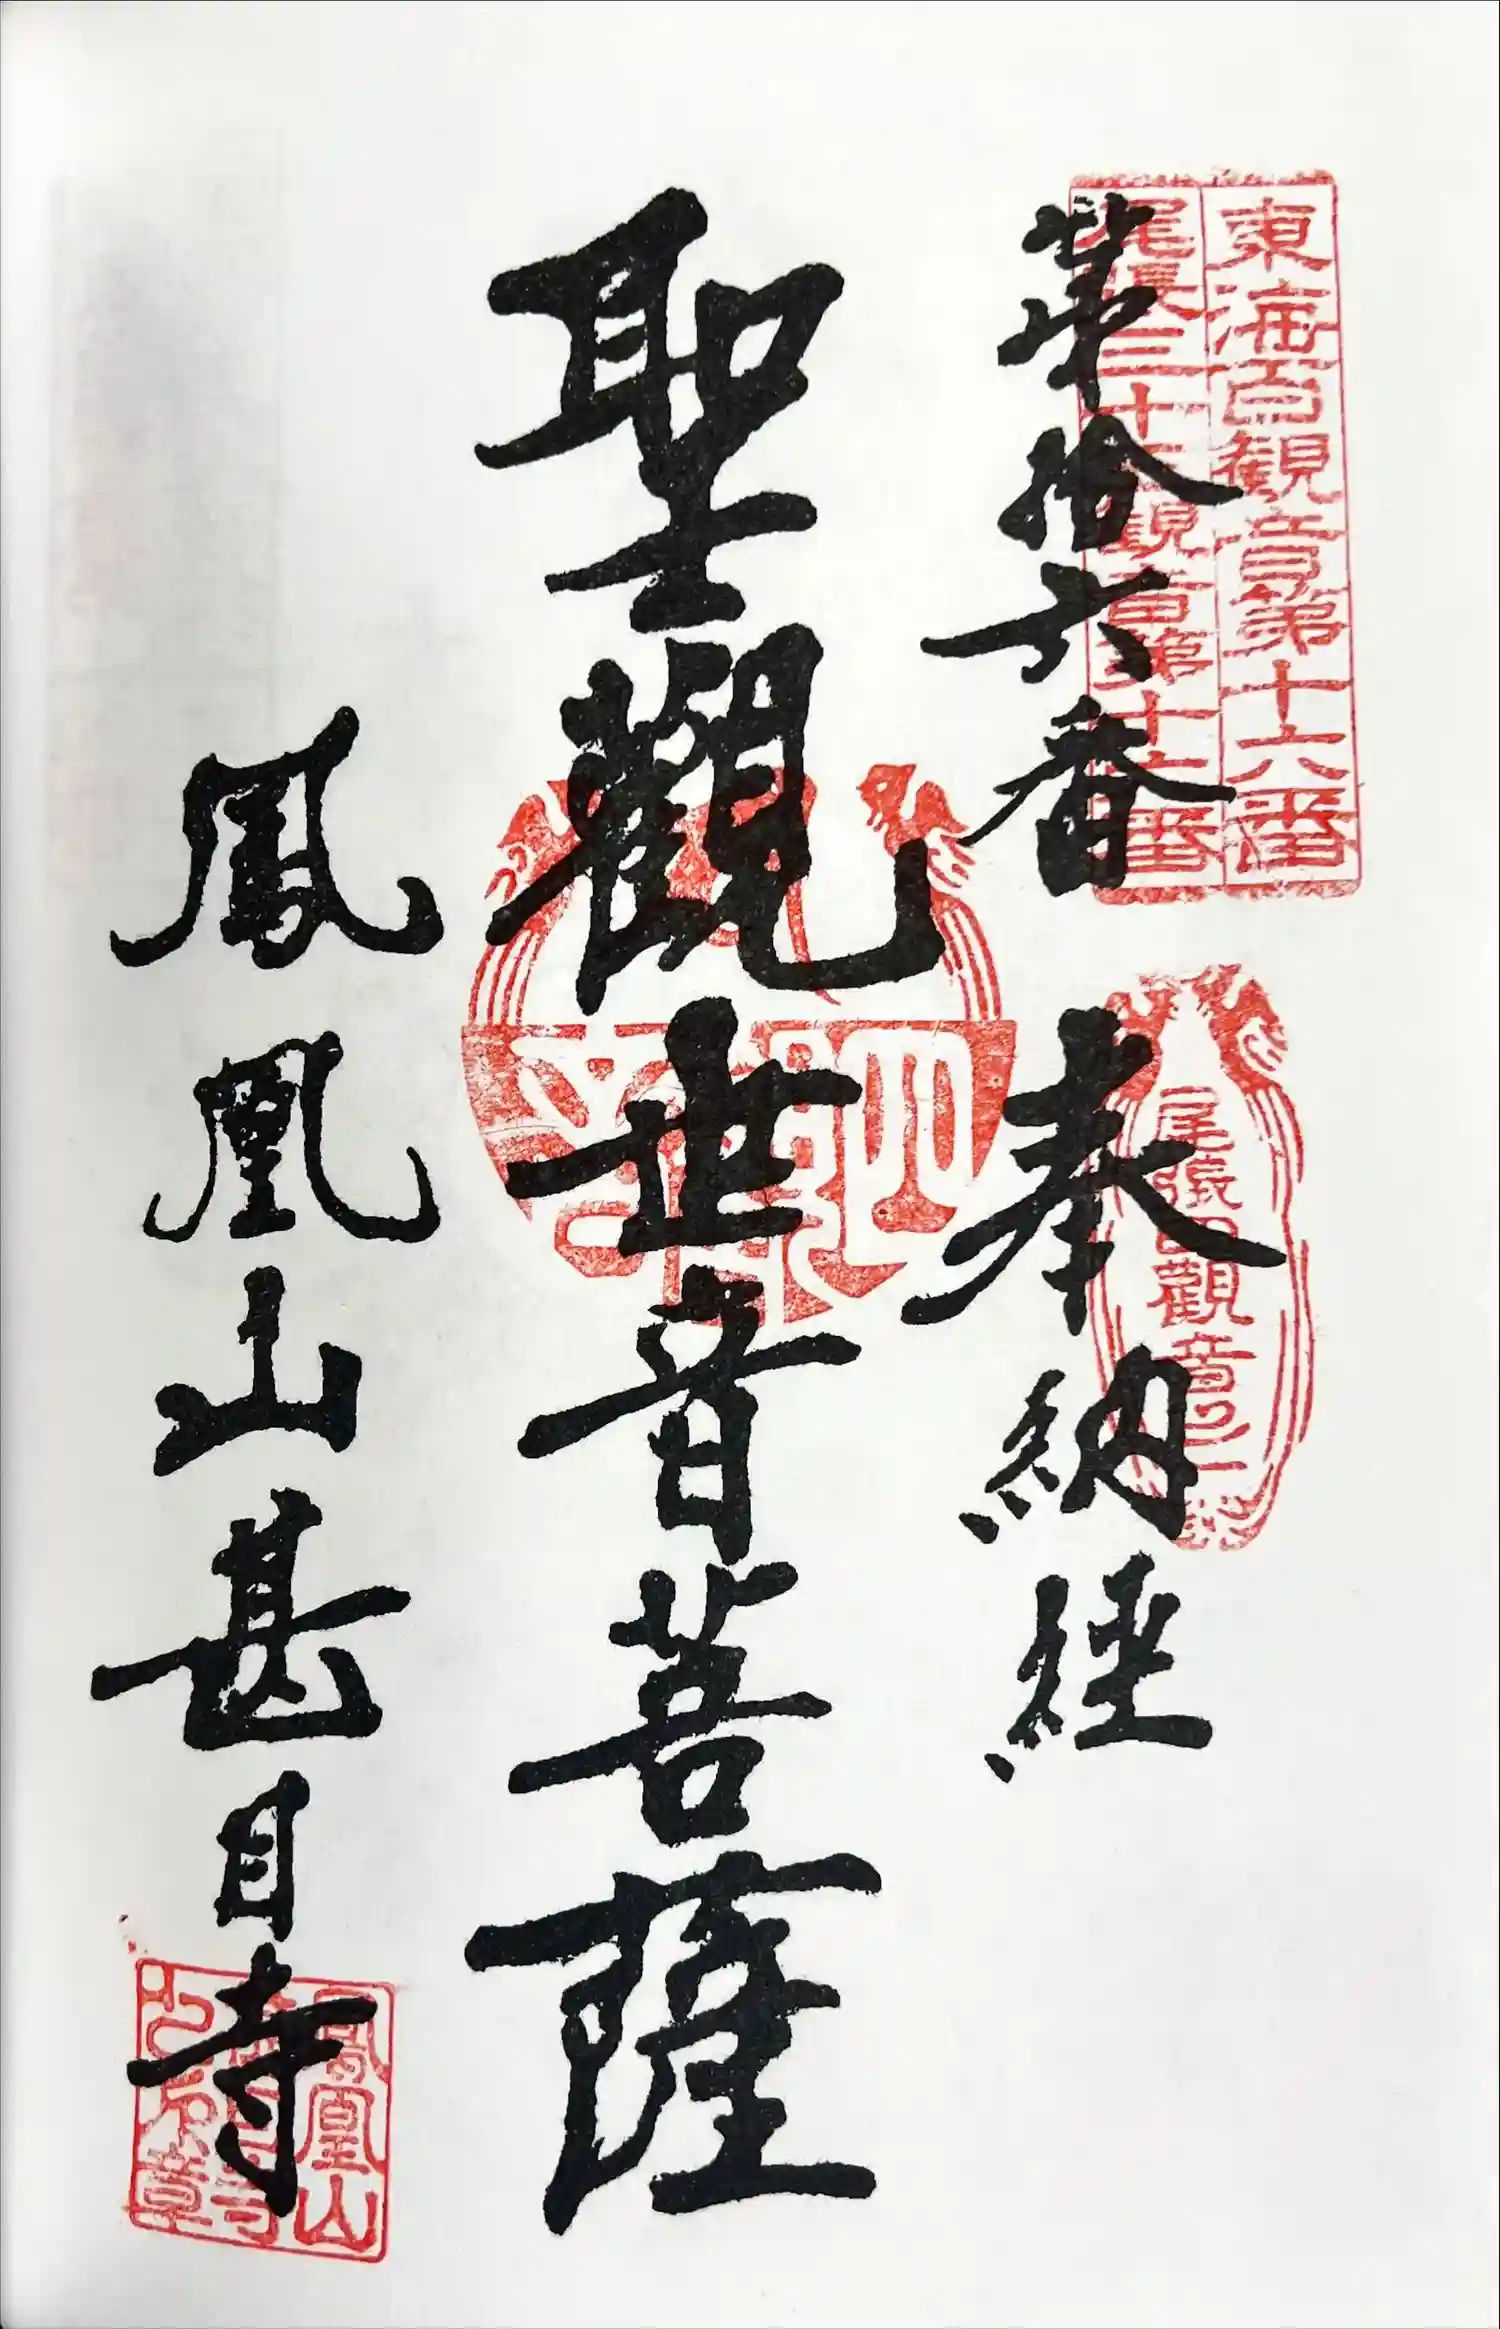 東海百観音第十六番
尾張三十三観音第十六番
第拾六番 奉納経
尾張四観音
聖觀世音菩薩
鳳凰山甚目寺
鳳凰山
甚目寺
印章